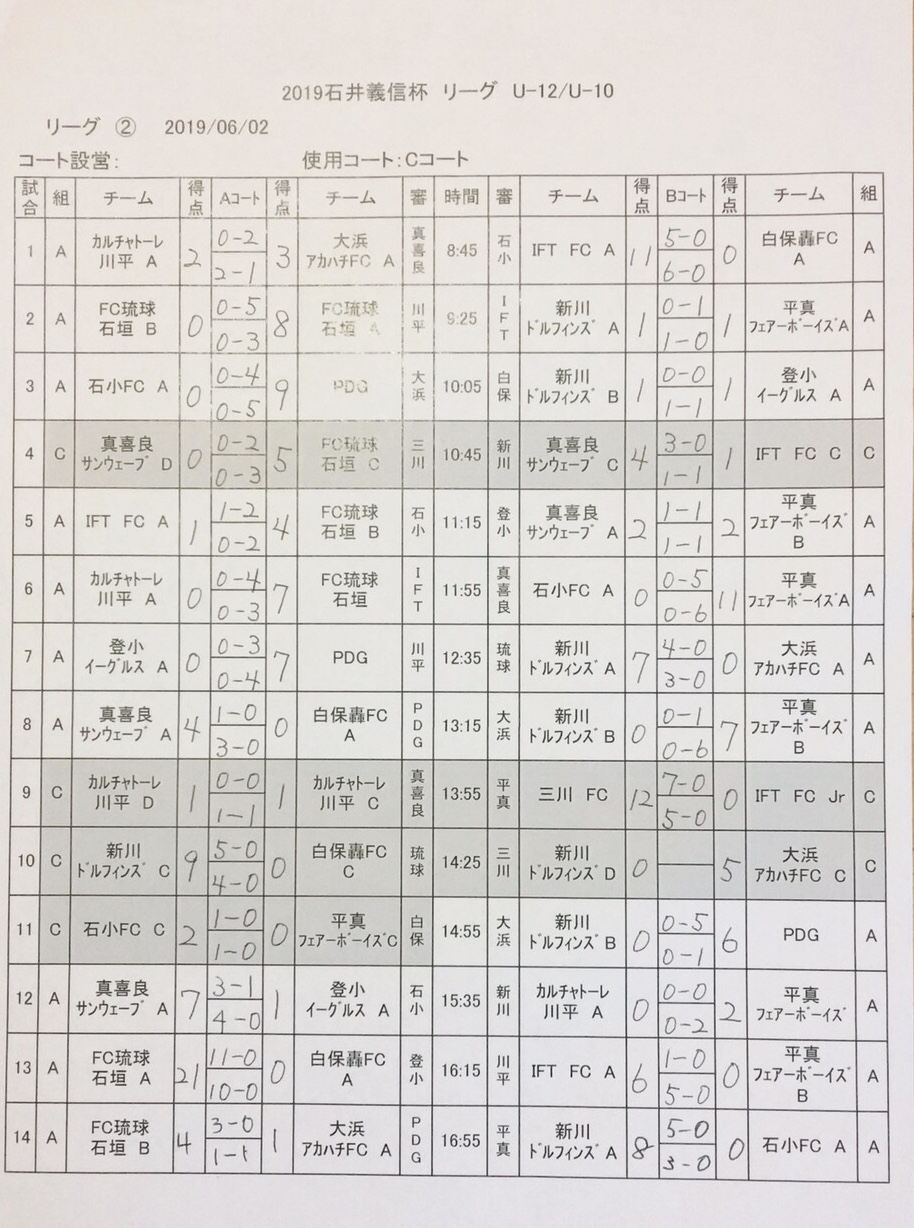 2019石井義信杯 リーグ U-12/U-10
リーグ ② 2019/06/02
コート設営: 使用コート:Cコート
試合 組 チーム 得点 Aコート 得点 チーム 審 時間 審 チーム 得点 Bコート 得点 チーム 組
1 A カルチャトーレ川平 A 2 0-2 2-1 3 大浜アカハチFC A 真喜良 8:45 石小 IFT FC A 11 5-0 6-0 0 白保轟FC A A
2 A FC琉球石垣 B 0 0-5 0-3 8 FC琉球石垣 A 川平 9:25 IFT 新川ドルフィンズ A 1 0-1 1-0 1 平真フェアーボーイズA A
3 A 石小FC A 0 0-4 0-5 9 PDG 大浜 10:05 白保 新川ドルフィンズ B 1 0-0 1-1 1 登小イーグルス A A
4 C 真喜良サンウェーブ D 0 0-2 0-3 5 FC琉球石垣 C 三川 10:45 新川 真喜良サンウェーブ C 4 3-0 1-1 1 IFT FC C C
5 A IFT FC A 1 1-2 0-2 4 FC琉球石垣 B 石小 11:15 登小 真喜良サンウェーブ A 2 1-1 1-1 2 平真フェアーボーイズB A
6 A カルチャトーレ川平 A 0 0-4 0-3 7 FC琉球石垣 IFT 11:55 真喜良 石小FC A 0 0-5 0-6 11 平真フェアーボーイズA A
7 A 登小イーグルス A 0 0-3 0-4 7 PDG 川平 12:35 琉球 新川ドルフィンズ A 7 4-0 3-0 0 大浜アカハチFC A A
8 A 真喜良サンウェーブ A 4 1-0 3-0 0 白保轟FC A PDG 13:15 大浜 新川ドルフィンズ B 0 0-1 0-6 7 平真フェアーボーイズB A
9 C カルチャトーレ川平 D 1 0-0 1-1 1 カルチャトーレ川平 C 真喜良 13:55 平真 三川 FC 12 7-0 5-0 0 IFT FC Jr C
10 C 新川ドルフィンズ C 9 5-0 4-0 0 白保轟FC C 琉球 14:25 三川 新川ドルフィンズ D 0 5 大浜アカハチFC C C
11 C 石小FC C 2 1-0 1-0 0 平真フェアーボーイズC 白保 14:55 大浜 新川ドルフィンズ B 0 0-5 0-1 6 PDG A
12 A 真喜良サンウェーブ A 7 3-1 4-0 1 登小イーグルス A 石小 15:35 新川 カルチャトーレ川平 A 0 0-0 0-2 2 平真フェアーボーイズ A
13 A FC琉球石垣 A 21 11-0 10-0 0 白保轟FC A 登小 16:15 川平 IFT FC A 6 1-0 5-0 0 平真フェアーボーイズB A
14 A FC琉球石垣 B 4 3-0 1-1 1 大浜アカハチFC A PDG 16:55 平真 新川ドルフィンズ A 8 5-0 3-0 0 石小FC A A